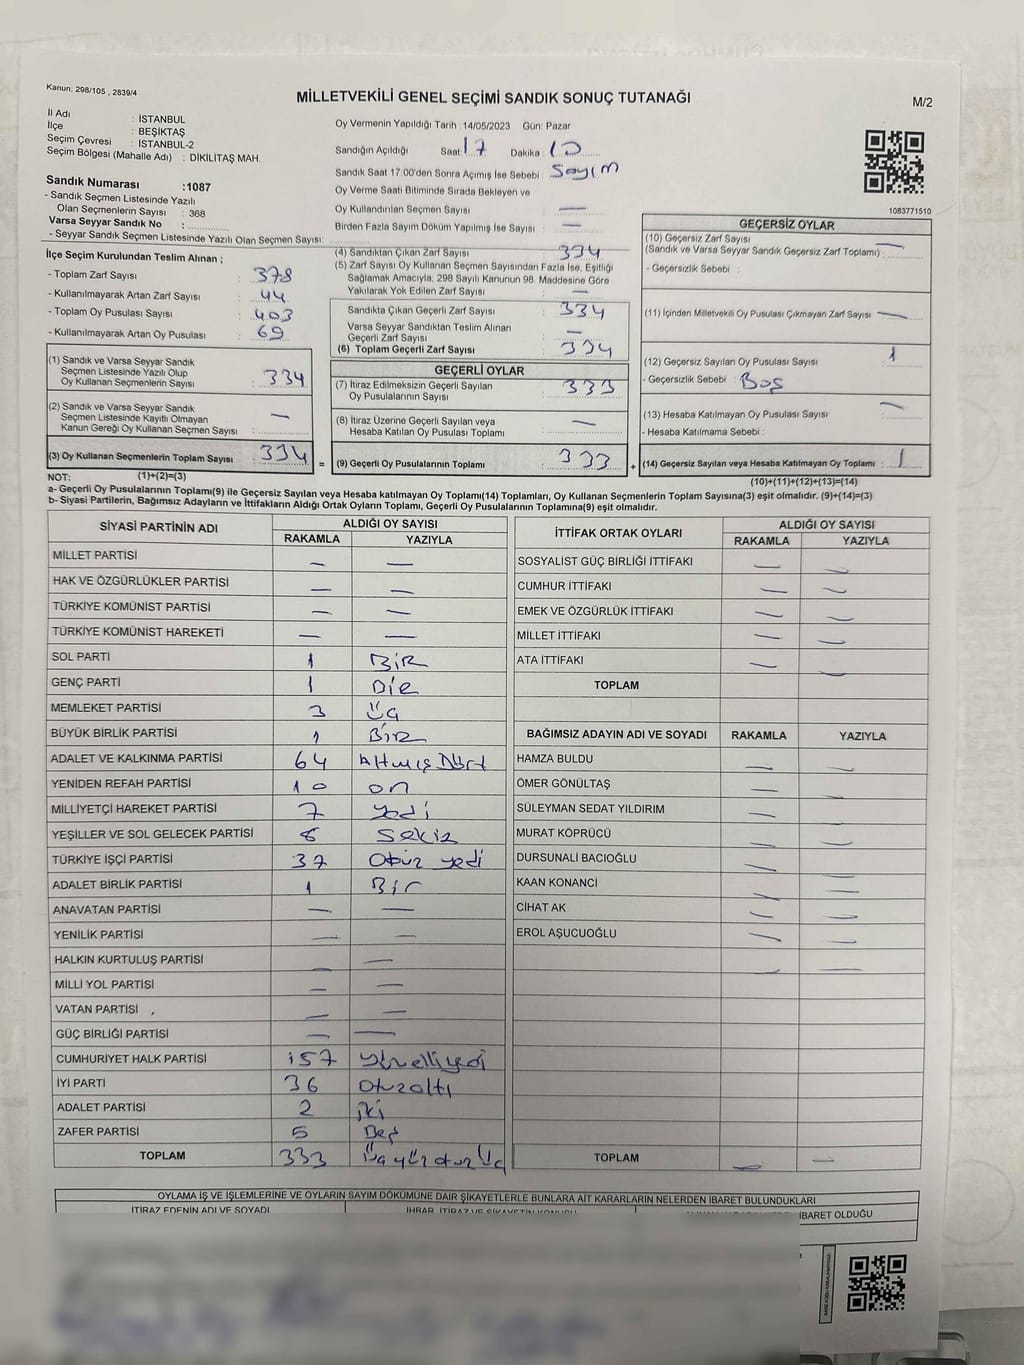 Kanun: 298/105 , 2839/4
MİLLETVEKİLİ GENEL SEÇİMİ SANDIK SONUÇ TUTANAĞI
M/2
İl Adı : İSTANBUL
İlçe : BEŞİKTAŞ
Seçim Çevresi : İSTANBUL-2
Seçim Bölgesi (Mahalle Adı) : DİKİLİTAŞ MAH.
Sandık Numarası :1087
- Sandık Seçmen Listesinde Yazılı
Olan Seçmenlerin Sayısı : 368
Varsa Seyyar Sandık No :
- Seyyar Sandık Seçmen Listesinde Yazılı Olan Seçmen Sayısı:
Oy Vermenin Yapıldığı Tarih :14/05/2023 Gün: Pazar
Sandığın Açıldığı Saat: 17 Dakika : 10
Sandık Saat 17:00'den Sonra Açımış İse Sebebi : Sayım
Oy Verme Saati Bitiminde Sırada Bekleyen ve
Oy Kullandırılan Seçmen Sayısı : —
Birden Fazla Sayım Döküm Yapılmış İse Sayısı : —
1083771510
İlçe Seçim Kurulundan Teslim Alınan ;
- Toplam Zarf Sayısı : 378
- Kullanılmayarak Artan Zarf Sayısı : 44
- Toplam Oy Pusulası Sayısı : 403
- Kullanılmayarak Artan Oy Pusulası : 69
(1) Sandık ve Varsa Seyyar Sandık
Seçmen Listesinde Yazılı Olup
Oy Kullanan Seçmenlerin Sayısı : 334
(2) Sandık ve Varsa Seyyar Sandık
Seçmen Listesinde Kayıtlı Olmayan
Kanun Gereği Oy Kullanan Seçmen Sayısı : —
(3) Oy Kullanan Seçmenlerin Toplam Sayısı : 334 =
(4) Sandıktan Çıkan Zarf Sayısı : 334
(5) Zarf Sayısı Oy Kullanan Seçmen Sayısından Fazla İse, Eşitliği
Sağlamak Amacıyla; 298 Sayılı Kanunun 98. Maddesine Göre
Yakılarak Yok Edilen Zarf Sayısı : —
Sandıkta Çıkan Geçerli Zarf Sayısı : 334
Varsa Seyyar Sandıktan Teslim Alınan
Geçerli Zarf Sayısı : —
(6) Toplam Geçerli Zarf Sayısı : 334
GEÇERLİ OYLAR
(7) İtiraz Edilmeksizin Geçerli Sayılan
Oy Pusulalarının Sayısı : 333
(8) İtiraz Üzerine Geçerli Sayılan veya
Hesaba Katılan Oy Pusulası Toplamı : —
(9) Geçerli Oy Pusulalarının Toplamı : 333 +
GEÇERSİZ OYLAR
(10) Geçersiz Zarf Sayısı
(Sandık ve Varsa Seyyar Sandık Geçersiz Zarf Toplamı) : —
- Geçersizlik Sebebi :
(11) İçinden Milletvekili Oy Pusulası Çıkmayan Zarf Sayısı : —
(12) Geçersiz Sayılan Oy Pusulası Sayısı : 1
- Geçersizlik Sebebi : Boş
(13) Hesaba Katılmayan Oy Pusulası Sayısı : —
- Hesaba Katılmama Sebebi :
(14) Geçersiz Sayılan veya Hesaba Katılmayan Oy Toplamı : 1
NOT: (1)+(2)=(3)
(10)+(11)+(12)+(13)=(14)
a- Geçerli Oy Pusulalarının Toplamı(9) ile Geçersiz Sayılan veya Hesaba katılmayan Oy Toplamı(14) Toplamları, Oy Kullanan Seçmenlerin Toplam Sayısına(3) eşit olmalıdır. (9)+(14)=(3)
b- Siyasi Partilerin, Bağımsız Adayların ve İttifakların Aldığı Ortak Oyların Toplamı, Geçerli Oy Pusulalarının Toplamına(9) eşit olmalıdır.
SİYASİ PARTİNİN ADI ALDIĞI OY SAYISI
RAKAMLA YAZIYLA
MİLLET PARTİSİ — —
HAK VE ÖZGÜRLÜKLER PARTİSİ — —
TÜRKİYE KOMÜNİST PARTİSİ — —
TÜRKİYE KOMÜNİST HAREKETİ — —
SOL PARTİ 1 BİR
GENÇ PARTİ 1 Bir
MEMLEKET PARTİSİ 3 Üç
BÜYÜK BİRLİK PARTİSİ 1 BİR
ADALET VE KALKINMA PARTİSİ 64 Altmış Dört
YENİDEN REFAH PARTİSİ 10 on
MİLLİYETÇİ HAREKET PARTİSİ 7 yedi
YEŞİLLER VE SOL GELECEK PARTİSİ 8 sekiz
TÜRKİYE İŞÇİ PARTİSİ 37 Otuz yedi
ADALET BİRLİK PARTİSİ 1 Bir
ANAVATAN PARTİSİ — —
YENİLİK PARTİSİ — —
HALKIN KURTULUŞ PARTİSİ — —
MİLLİ YOL PARTİSİ — —
VATAN PARTİSİ — —
GÜÇ BİRLİĞİ PARTİSİ — —
CUMHURİYET HALK PARTİSİ 157 yüzelliyedi
İYİ PARTİ 36 otuzaltı
ADALET PARTİSİ 2 iki
ZAFER PARTİSİ 5 Beş
TOPLAM 333 Üçyüzotuzüç
İTTİFAK ORTAK OYLARI ALDIĞI OY SAYISI
RAKAMLA YAZIYLA
SOSYALİST GÜÇ BİRLİĞİ İTTİFAKI — —
CUMHUR İTTİFAKI — —
EMEK VE ÖZGÜRLÜK İTTİFAKI — —
MİLLET İTTİFAKI — —
ATA İTTİFAKI — —
TOPLAM
BAĞIMSIZ ADAYIN ADI VE SOYADI RAKAMLA YAZIYLA
HAMZA BULDU — —
ÖMER GÖNÜLTAŞ — —
SÜLEYMAN SEDAT YILDIRIM —
MURAT KÖPRÜCÜ — —
DURSUNALİ BACIOĞLU — —
KAAN KONANCİ — —
CİHAT AK — —
EROL AŞUCUOĞLU — —
TOPLAM — —
OYLAMA İŞ VE İŞLEMLERİNE VE OYLARIN SAYIM DÖKÜMÜNE DAİR ŞİKAYETLERLE BUNLARA AİT KARARLARIN NELERDEN İBARET BULUNDUKLARI
İTİRAZ EDENİN ADI VE SOYADI
İHBAR, İTİRAZ VE ŞİKAYETİN KONUSU
İBARET OLDUĞU